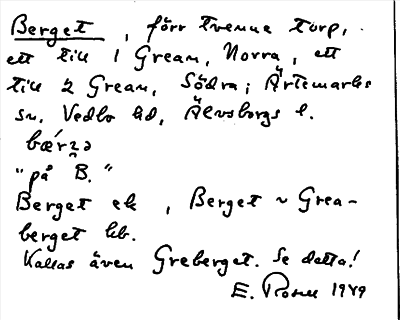 Berget, förr tvenne torp,
ett till 1 Grean, Norra, ett
till 2 Grean, Södra; Ärtemarks
sn, Vedbo hd, Älvsborgs l.
"på B."
Berget ek, Berget ~ Grea-
berget hb.
Kallas även Greberget. Se detta!
E. Rosell 1989